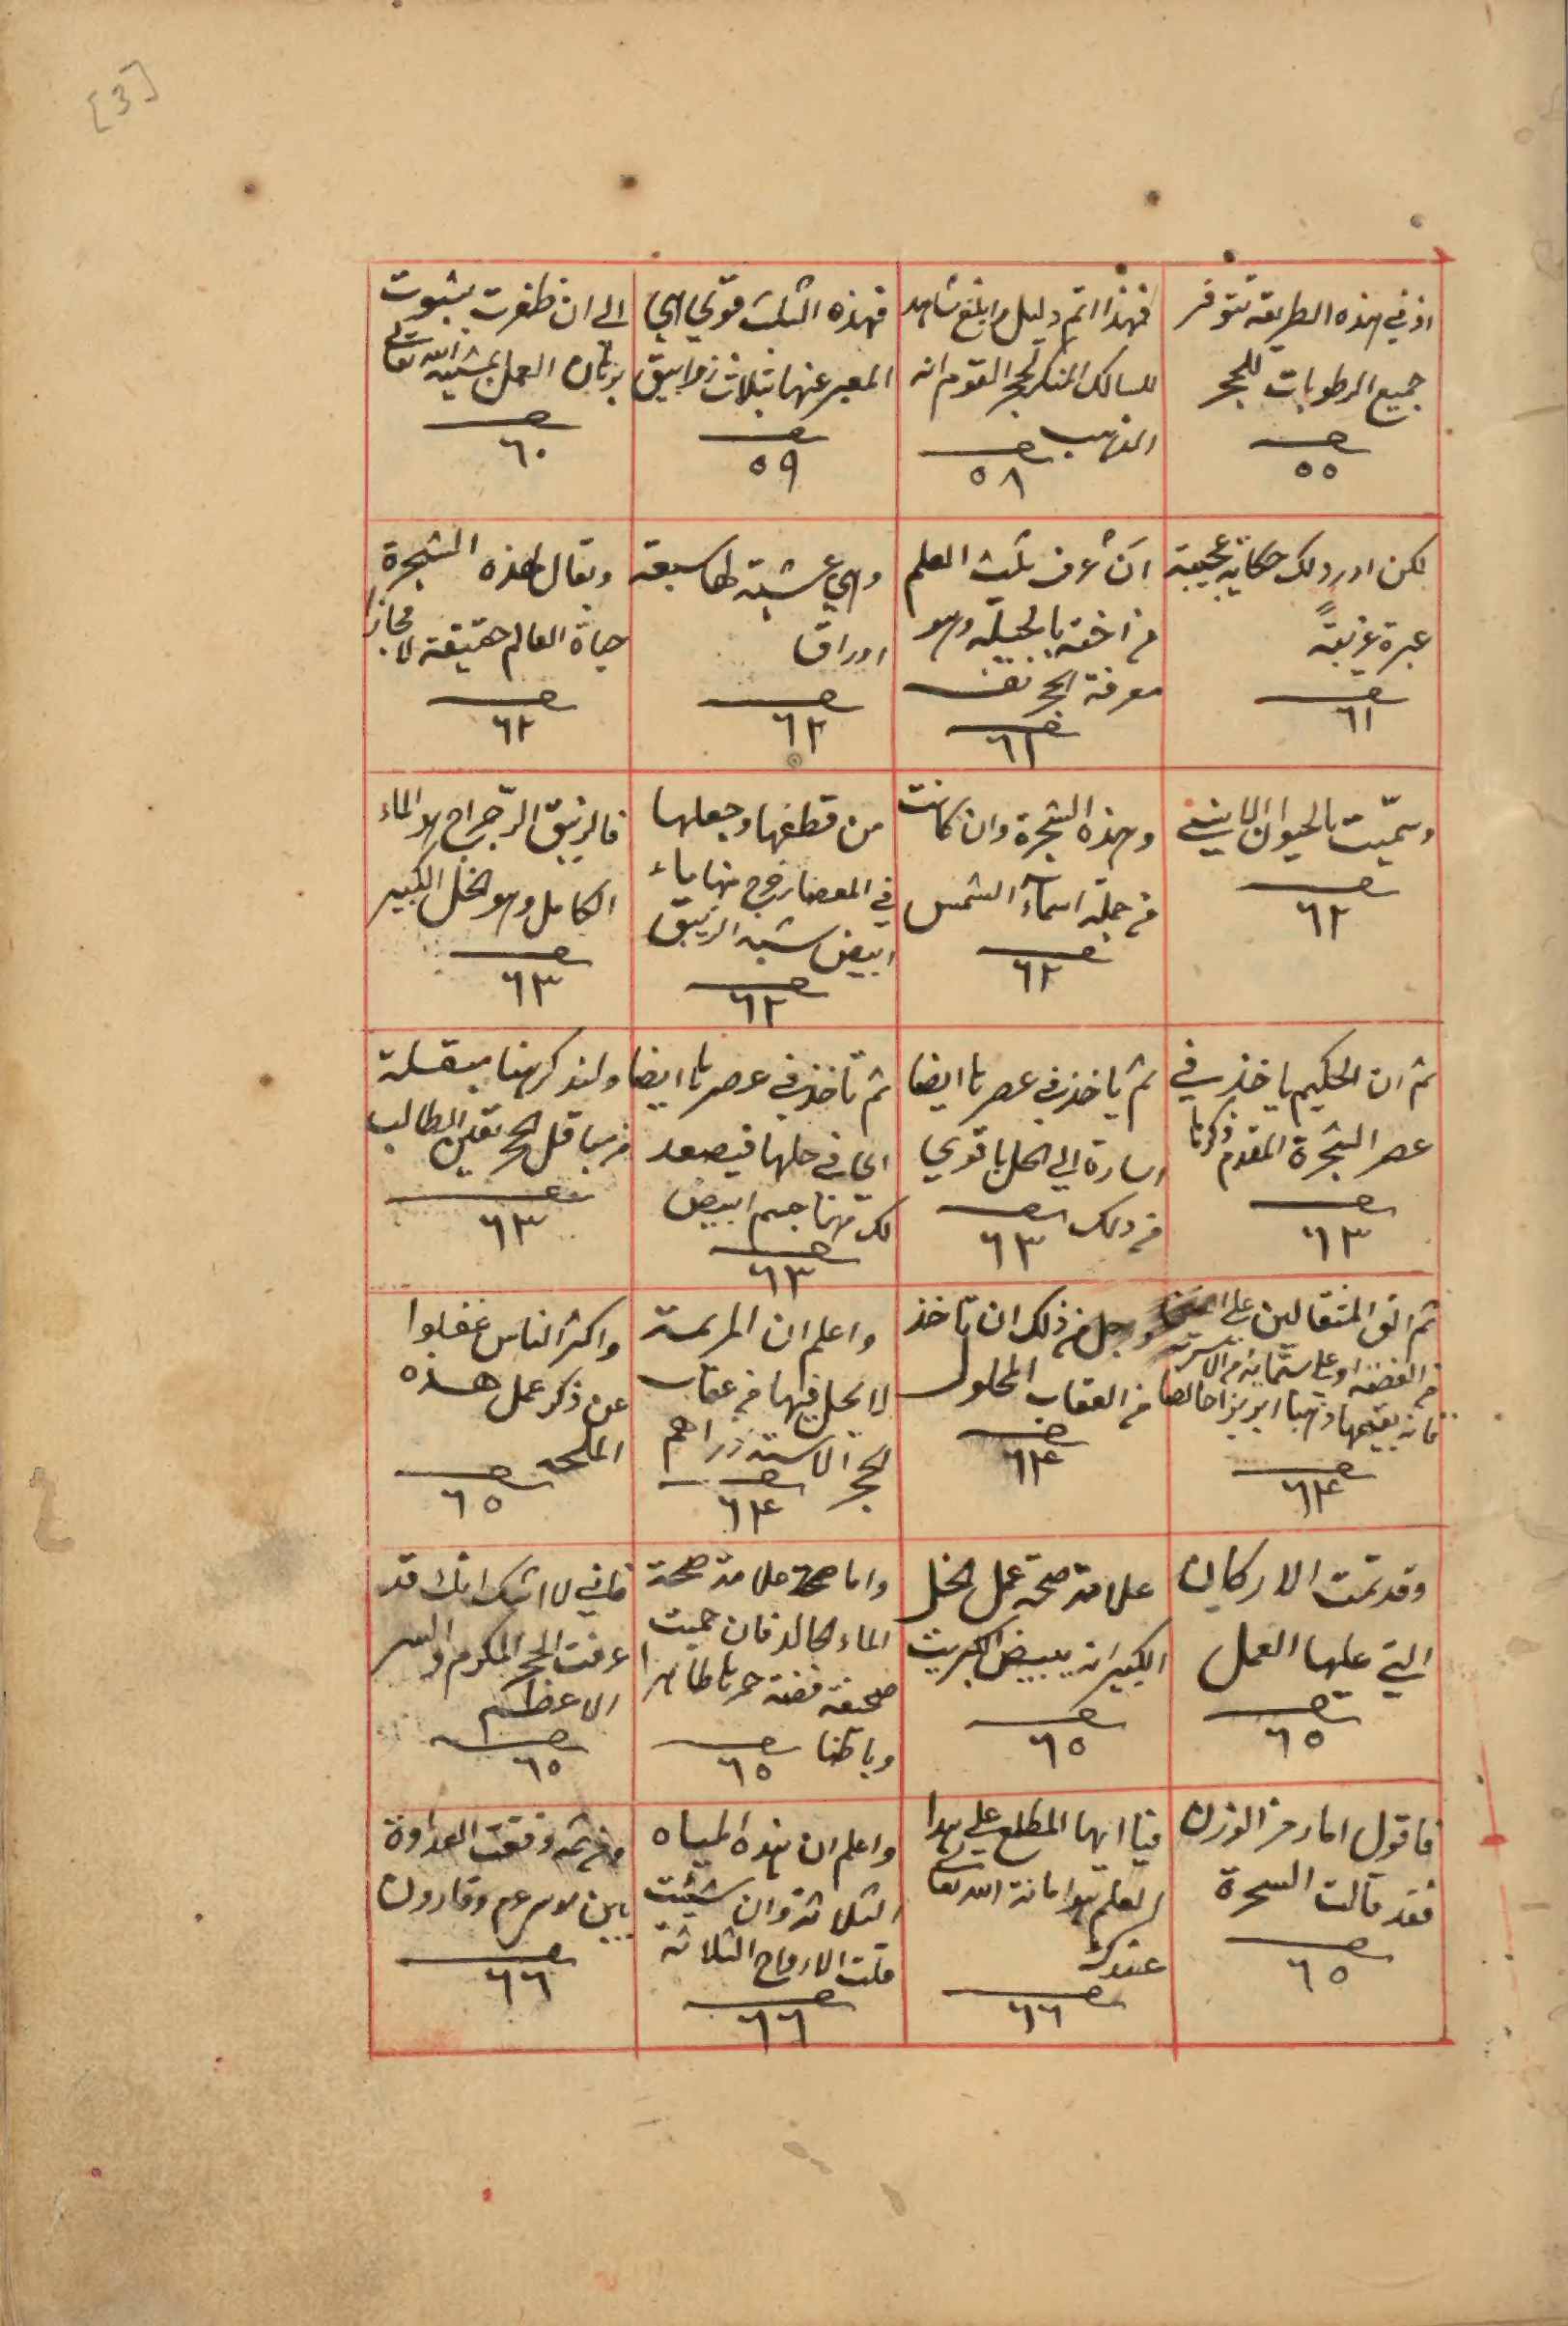 [3]
اذ في هذه الطريقة تتوفر
جميع الرطوبات للحجر
صـ
٥٥
فهذا اتم دليل وابلغ شاهد
للسالك المنكر لحجر القوم انه
الذهب
صـ
٥٨
فهذه الثلث قوي هي
المعبر عنها بثلاث زوابيق
صـ
٥٩
الى ان ظفرت بثبوت
برهان العمل بمشية الله تعالى
صـ
٦٠
لكن اورد لك حكاية عجيبة
عبرة غريبةً
صـ
٦١
ان عرف ثلث العلم
معرفة الحجر
صـ
٦٢
وهي عشبة لها سبعة
اوراق
صـ
٦٢
ويقال لهذه الشجرة
حياة العالم حقيقة لا مجازا
صـ
٦٢
وسمّيت بالحيوان
صـ
٦٢
وهذه الشجرة وان كانت
من جملة اسماء الشمس
صـ
٦٢
من قطفها وجعلها
في المعصار خرج منها ماء
ابيض شبه الزيبق
صـ
٦٢
فالزيبق الرّجراج هو الماء
الكامل وهو الخل الكبير
صـ
٦٣
ثم ان الحكيم ياخذ في
عصر الشجرة المقدم ذكرها
صـ
٦٣
ثم ياخذ في عصرها ايضا
اشارة الى الحل باقوى
من ذلك
صـ
٦٣
ثم تاخذ في عصرها ايضا
اي في حلها فيصعد
لك منها جسم ابيض
صـ
٦٣
ولنذكر هنا
الطالب
صـ
٦٣
ثم الق المثقالين على
من الفضة او على ستماية من
فانه يقيمها ذهبا ابريزا خالصا
صـ
٦٤
وجل من ذلك ان تاخذ
من العقاب المحلول
صـ
٦٤
واعلم ان المريسة
لا يحل فيها من عقاب
الحجر الا ستة دراهم
صـ
٦٤
واكثر الناس غفلوا
عن ذكر عمل هذه
الملحة
صـ
٦٥
وقد تمت الاركان
التي عليها العمل
صـ
٦٥
علامة صحة عمل الخل
الكبير انه يبيض الكبريت
صـ
٦٥
واما صحة علامة صحة
الماء الخالد فان حميت
صحيفة فضة حمرها ظاهرا
وباطنا
صـ
٦٥
فاني لا اشك انك قد
عرفت الحجر المكرم والسر
الاعظم
صـ
٦٥
فاقول اما رمز الوزن
فقد قالت السحرة
صـ
٦٥
فيا ايها المطلع على هذا
العلم هو امانة الله تعالى
عندك
صـ
٦٦
واعلم ان هذه المياه
الثلاثة وان شيت
قلت الارواح الثلاثة
صـ
٦٦
ومن ثمه وقعت العداوة
بين موسى عم وقارون
صـ
٦٦